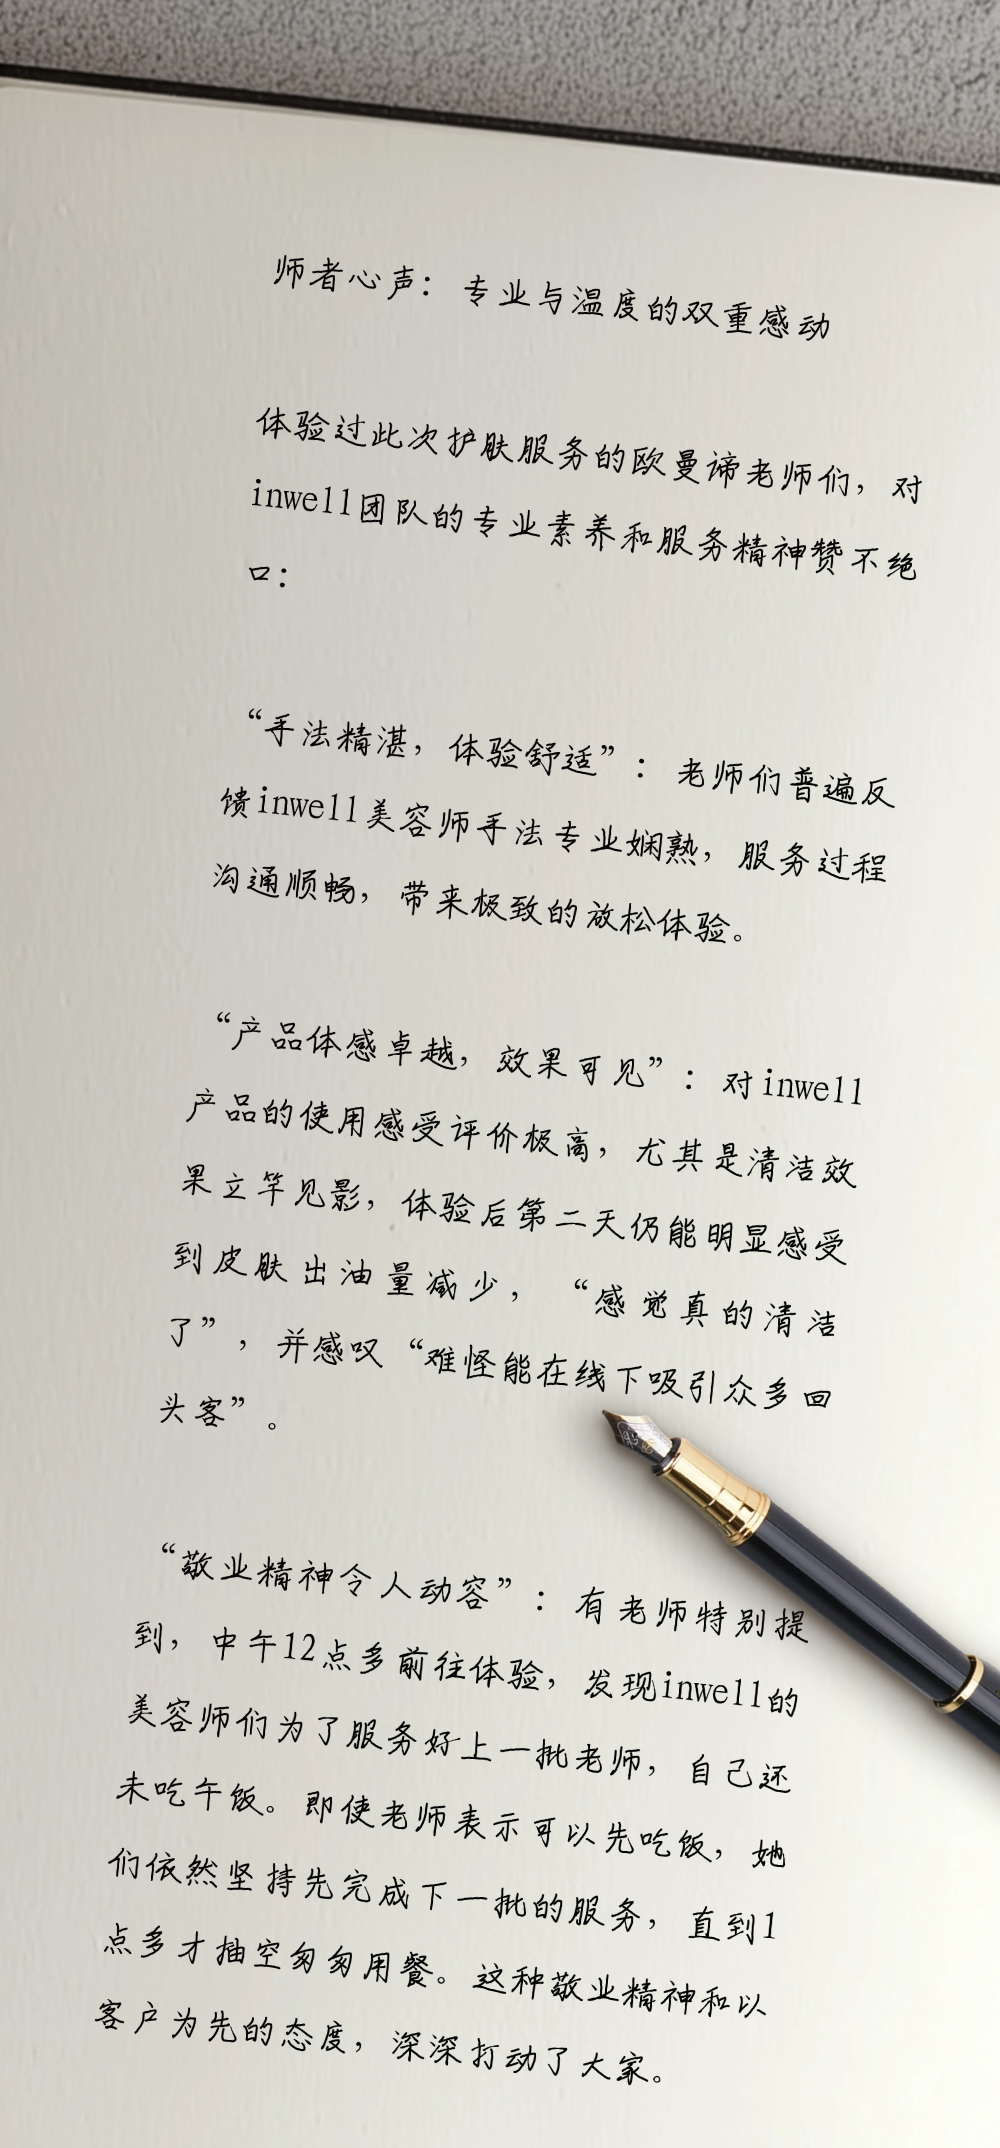 师者心声：专业与温度的双重感动
体验过此次护肤服务的欧曼谛老师们，对
inwell团队的专业素养和服务精神赞不绝
口：
“手法精湛，体验舒适”：老师们普遍反
馈inwell美容师手法专业娴熟，服务过程
沟通顺畅，带来极致的放松体验。
“产品体感卓越，效果可见”：对inwell
产品的使用感受评价极高，尤其是清洁效
果立竿见影，体验后第二天仍能明显感受
到皮肤出油量减少，“感觉真的清洁
了”，并感叹“难怪能在线下吸引众多回
头客”。
“敬业精神令人动容”：有老师特别提
到，中午12点多前往体验，发现inwell的
美容师们为了服务好上一批老师，自己还
未吃午饭。即使老师表示可以先吃饭，她
们依然坚持先完成下一批的服务，直到1
点多才抽空匆匆用餐。这种敬业精神和以
客户为先的态度，深深打动了大家。